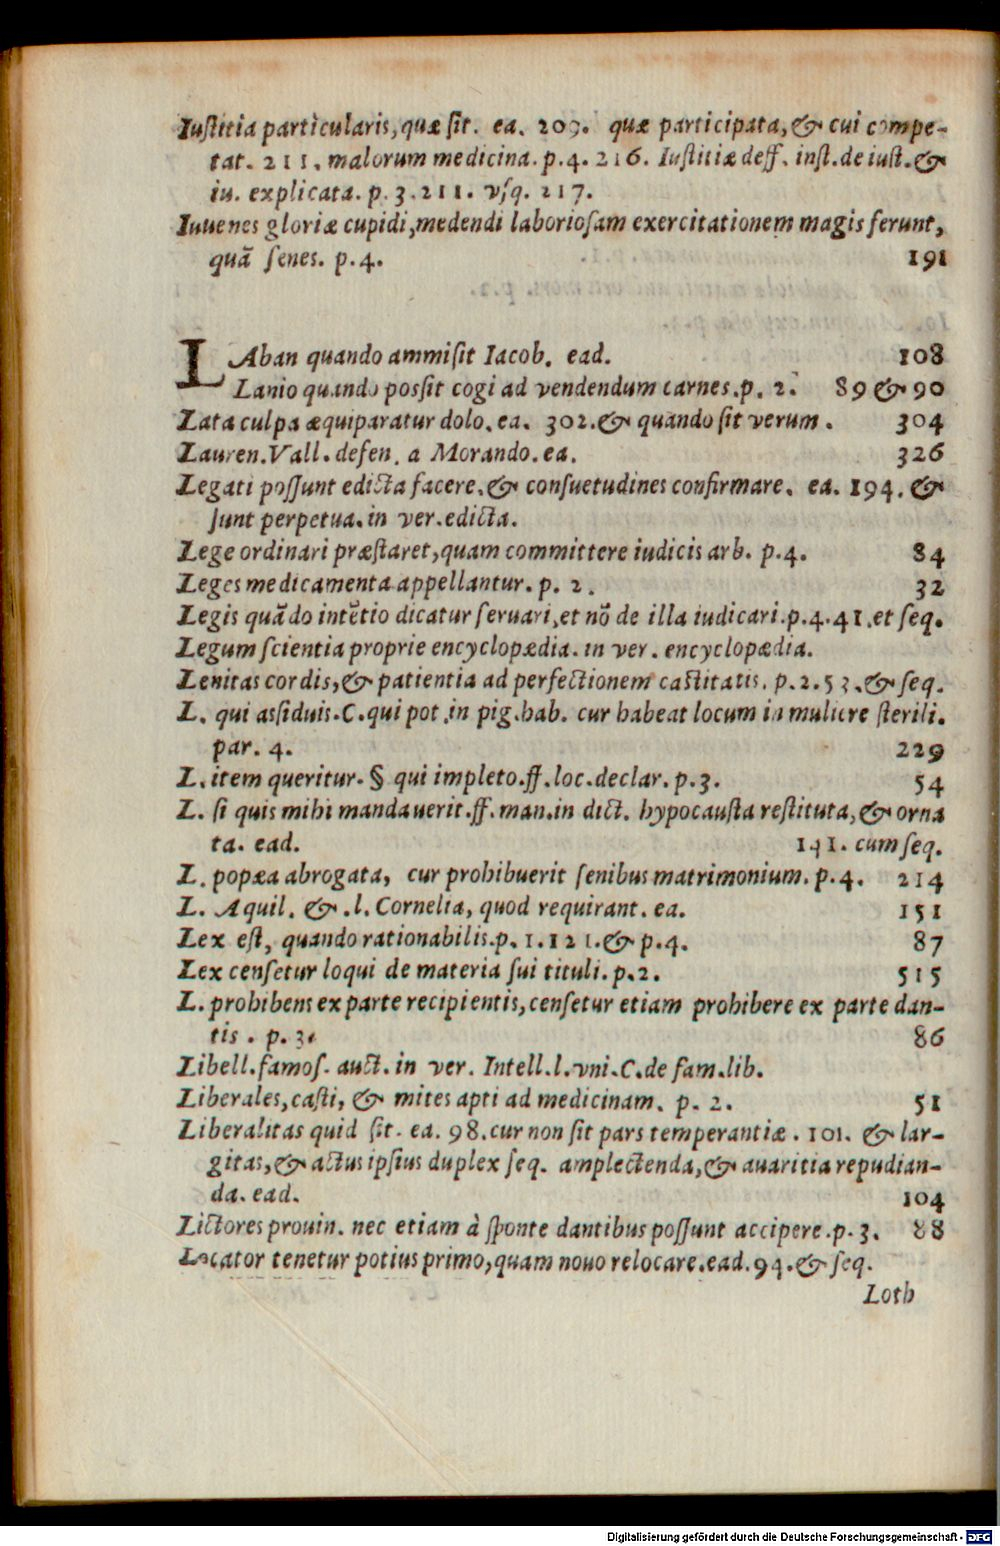 Iuſtitia particularis, quæ ſit. ea. 209. quæ participata, & cui compe-
tat. 211. malorum medicina. p.4. 216. Iuſtitiæ deff. inſt. de iuſt. &
iu. explicata. p. 3. 211. vſq. 217.
Iuuenes gloriæ cupidi, medendi laborioſam exercitationem magis ferunt,
quã ſenes. p.4. 191
LAban quando ammiſit Iacob. ead. 108
Lanio quando poſſit cogi ad vendendum carnes. p. 2. 89 & 90
Lata culpa æquiparatur dolo. ea. 302. & quando ſit verum. 304
Lauren. Vall. defen. a Morando. ea. 326
Legati poſſunt edicta facere. & conſuetudines confirmare. ea. 194. &
ſunt perpetua. in ver. edicta.
Lege ordinari præſtaret, quam committere iudicis arb. p.4. 84
Leges medicamenta appellantur. p. 2. 32
Legis quãdo intẽtio dicatur ſeruari, et nõ de illa iudicari. p.4.41. et ſeq.
Legum ſcientia proprie encyclopædia. in ver. encyclopædia.
Lenitas cordis, & patientia ad perfectionem caſtitatis. p.2.53. & ſeq.
L. qui aſſiduis. C. qui pot. in pig. hab. cur habeat locum in muliere ſterili.
par. 4. 229
L. item queritur. § qui impleto. ff. loc. declar. p.3. 54
L. ſi quis mihi mandauerit. ff. man. in dict. hypocauſta reſtituta, & orna
ta. ead. 141. cum ſeq.
L. popæa abrogata, cur prohibuerit ſenibus matrimonium. p.4. 214
L. Aquil. & .l. Cornelia, quod requirant. ea. 151
Lex eſt, quando rationabilis. p. 1.121. & p.4. 87
Lex cenſetur loqui de materia ſui tituli. p.2. 515
L. prohibens ex parte recipientis, cenſetur etiam prohibere ex parte dan-
tis. p. 3. 86
Libell. famoſ. auct. in ver. Intell. l. vni. C. de fam. lib.
Liberales, caſti, & mites apti ad medicinam. p. 2. 51
Liberalitas quid ſit. ea. 98. cur non ſit pars temperantiæ. 101. & lar-
gitas, & actus ipſius duplex ſeq. amplectenda, & auaritia repudian-
da. ead. 104
Lictores prouin. nec etiam à ſponte dantibus poſſunt accipere. p. 3. 88
Locator tenetur potius primo, quam nouo relocare. ead. 94. & ſeq.
Loth
Digitalisierung gefördert durch die Deutsche Forschungsgemeinschaft - DFG